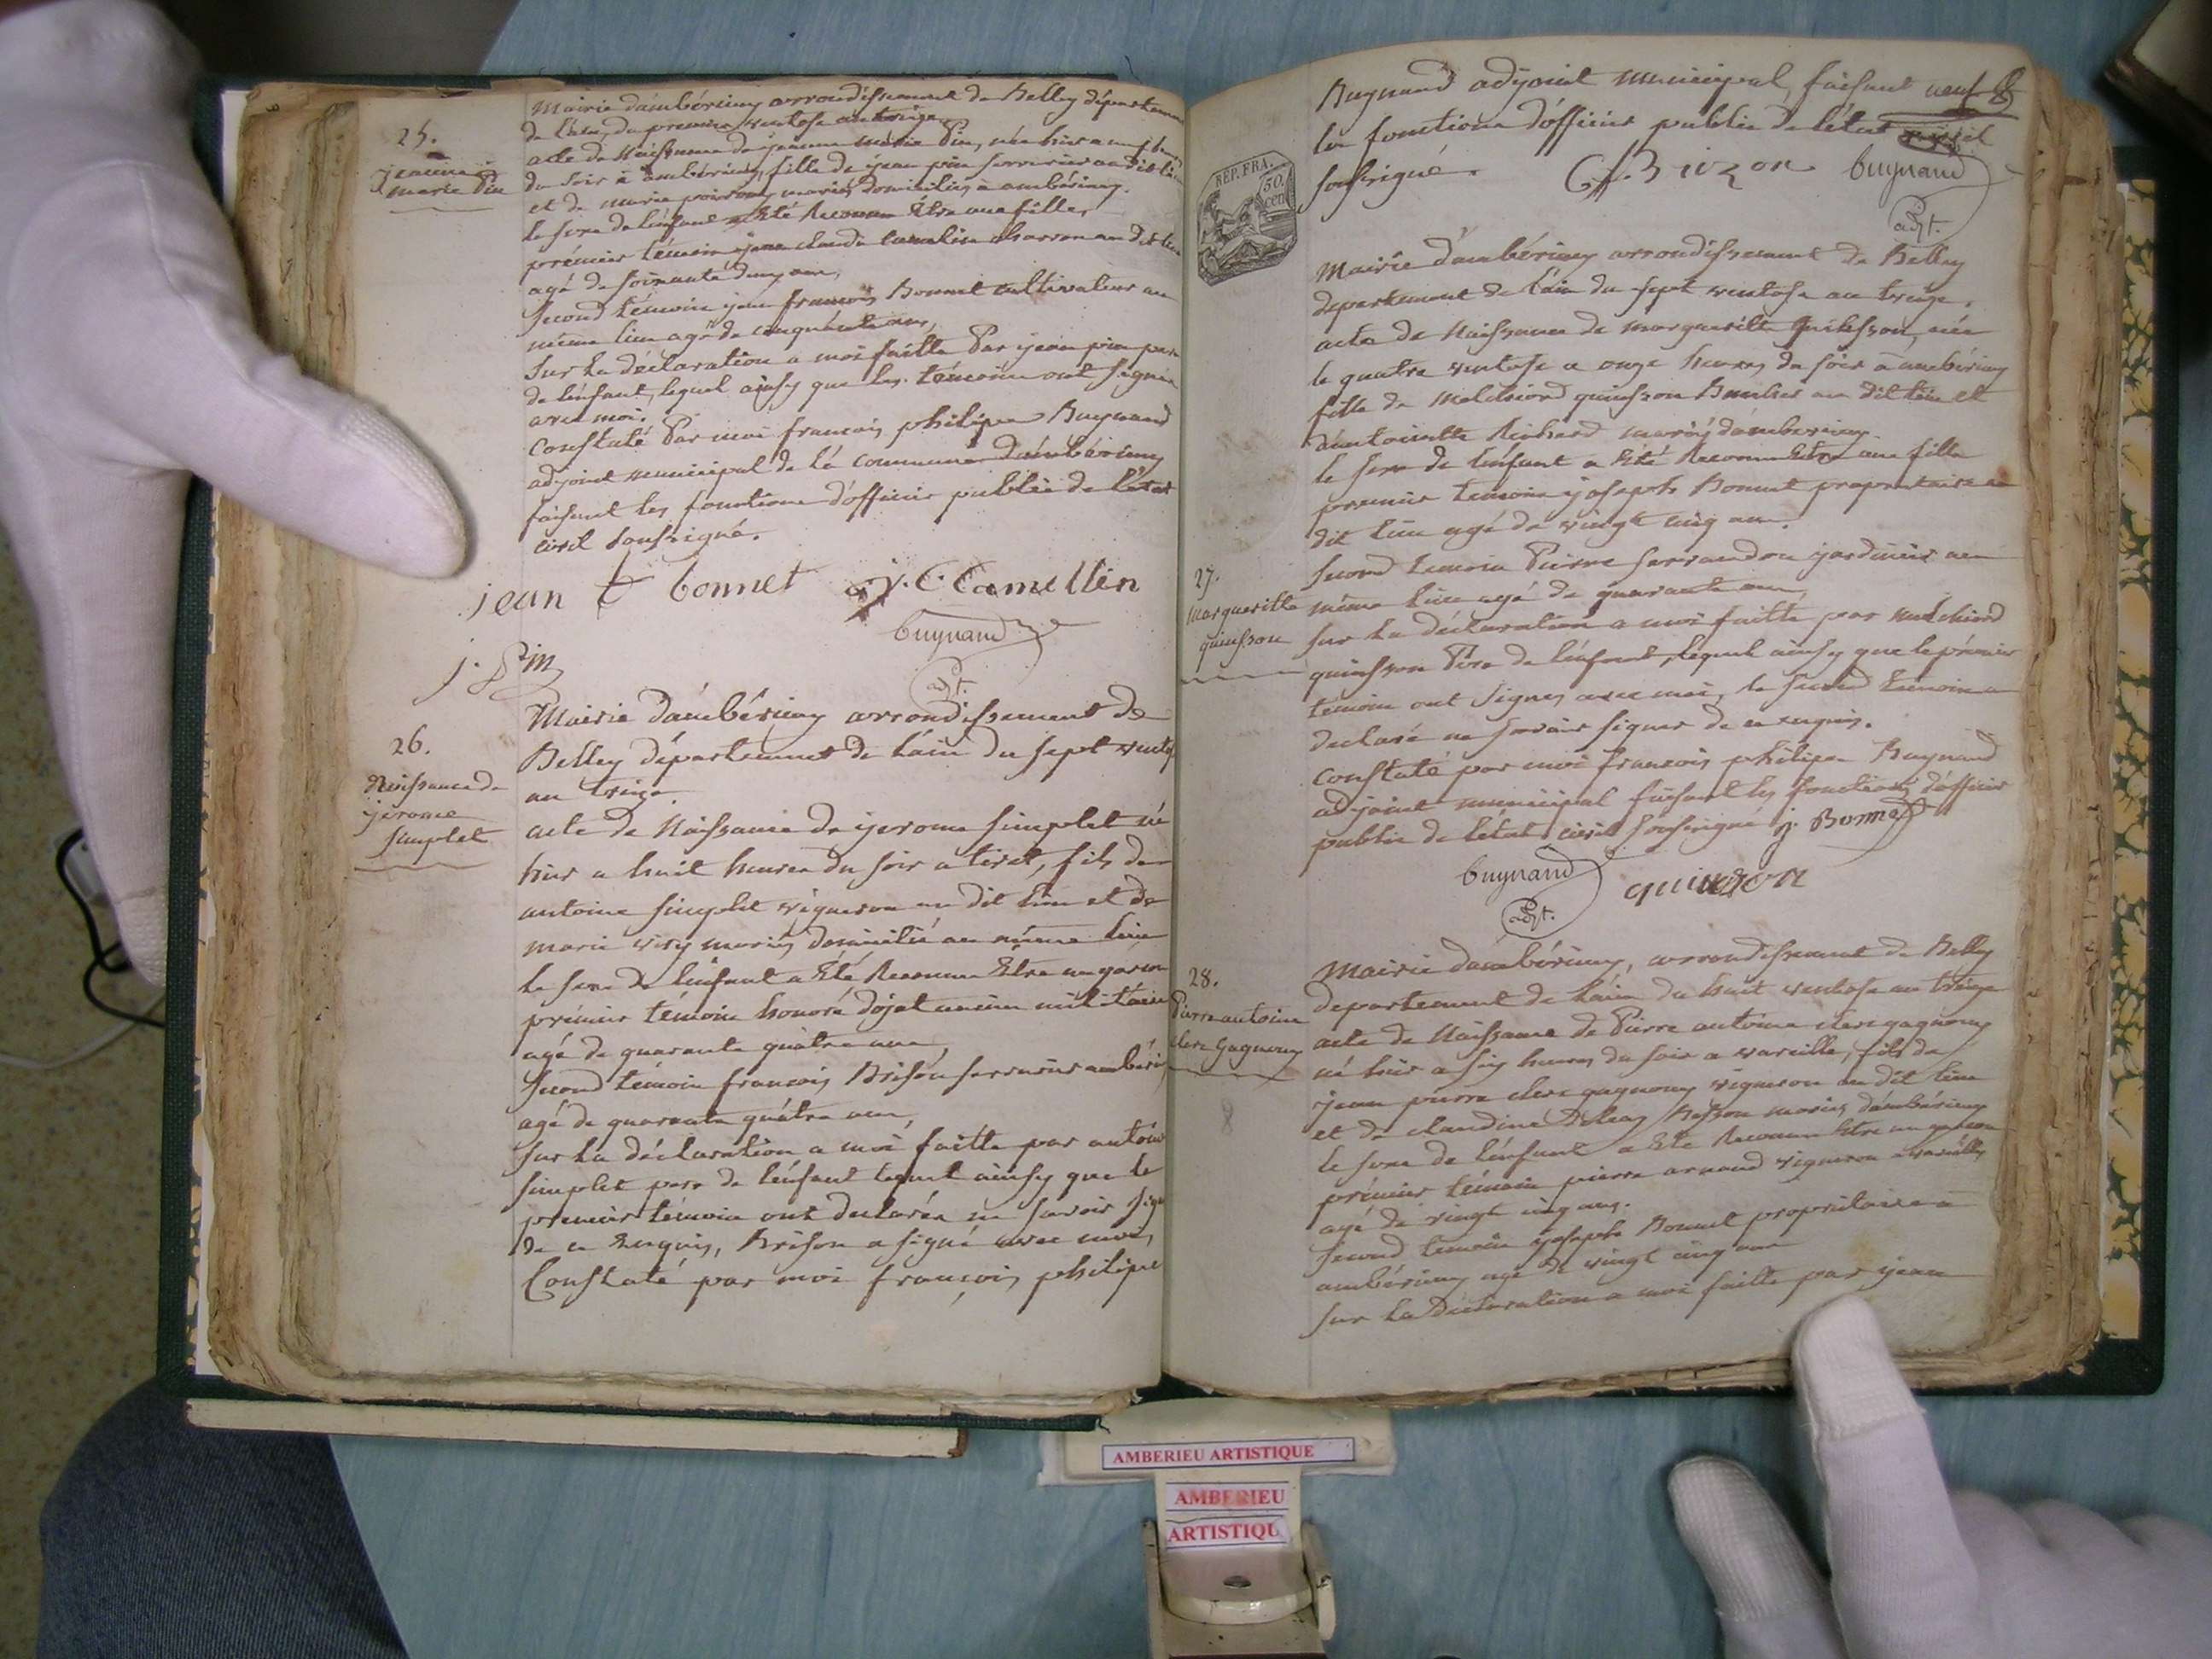 25.
jeanne
marie Pin
Mairie d'ambérieux arrondissement de Belley département
de l'ain, du premier ventose an treize
acte de Naissance de jeanne marie Pin, née hier a neuf heures
du soir à ambérieux, fille de jean pin serrurier au dit lieu
et de marie poisson, mariés domiciliés à ambérieux.
le sexe de lenfant a Eté Reconnu Etre une fille,
prémier témoin jean claude camelin charron au dit lieu
agé de soixante deux ans,
second témoin jean françois Bonnet cultivateur au
même lieu agé de cinquante ans,
sur la déclaration a moi faitte Par jean pin pere
de lenfant, lequel ainsy que les témoins ont signés
avec moi.
constaté Par moi françois philipe Buynand
adjoint municipal de la commune d'ambérieux
faisant les fonctions d'officier public de l'état
civil soussigné.
jean f bonnet j. C Camellin
buynand
adjt.
j. Pin
26.
Naissance de
jerome
simplet
Mairie d'ambérieux arrondissement de
Belley département de l'ain du sept ventose
an treize.
acte de Naissance de jerome simplet né
hier a huit heures du soir a tiret, fils de
antoine simplet vigneron au dit lieu et de
marie mariés domicilié au même lieu
le sexe de l'enfant a Eté Reconnu Etre un garcon
prémier témoin honoré dojat ancien militaire
agé de quarante quatre ans,
second témoin françois Brison serrurier ambérieux
agé de quarante quatre ans,
sur la déclaration a moi faitte par antoine
simplet pere de l'enfant lequel ainsy que le
premier témoin ont declarés ne savoir signer
de ce Enquis, Brison a signé avec moi,
Constaté par moi françois philipe
Buynand adjoint municipal, faisant
les fonctions d'officier public de l'état civil
soussigné.
REP. FRA.
50.
cen
f. Brizon buynand
adjt.
27.
margueritte
quinsson
Mairie d'ambérieux arrondissement de Belley
departement de l'ain du sept ventose an treize.
acte de Naissance de margueritte Quinsson, née
le quatre ventose a onze heures du soir à ambérieux
fille de Melchiord quinsson au dit lieu et
d'antoinette Richard mariés d'ambérieux.
le sexe de l'enfant a Eté Reconnu Etre une fille
premier temoin joseph Bonnet propriétaire au
dit lieu agé de vingt cinq ans.
second temoin Pierre jardinier au
même lieu agé de quarante ans,
sur la déclaration a moi faitte par melchiord
quinsson Père de l'enfant, lequel ainsy que le prémier
témoin ont signés avec moi, le second témoin a
declaré ne savoir signer de ce enquis.
constaté par moi françois philipe Buynand
adjoint municipal faisant les fonctions d'officier
public de letat civil soussigné j. Bonnet
buynand quinson
adjt.
28.
Pierre antoine
clerc Gagneux
Mairie d'ambérieux, arrondissement de Belley
departement de l'ain du huit ventose an treize
acte de Naissance de Pierre antoine clerc gagneux
né hier a six heures du soir a vareille, fils de
jean pierre clerc gagneux vigneron au dit lieu
et de claudine mariés d'ambérieux
le sexe de l'enfant a Eté Reconnu Etre un garcon
prémier témoin pierre arnaud vigneron a vareille
agé de vingt cinq ans.
second temoin joseph Bonnet propriétaire a
ambérieux agé de vingt cinq ans
sur la Déclaration a moi faitte par jean
AMBERIEU ARTISTIQUE
AMBERIEU
ARTISTIQU